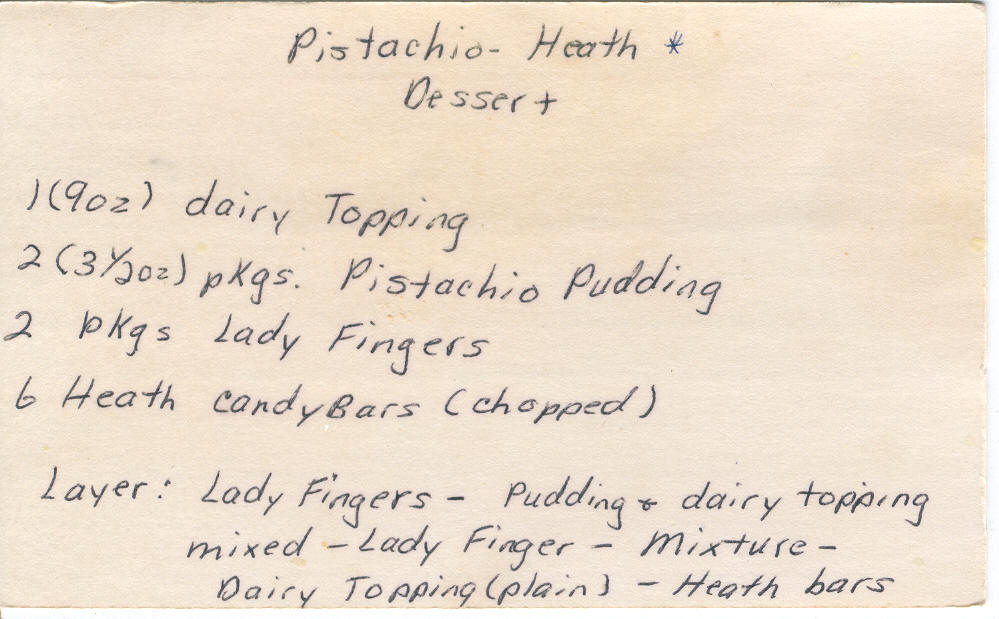 Pistachio- Heath *
Dessert
1 (9oz) dairy Topping
2 (3 1/2oz) pkgs. Pistachio Pudding
2 pkgs Lady Fingers
6 Heath candy Bars (chopped)
Layer: Lady Fingers - Pudding & dairy topping
mixed - Lady Finger - Mixture -
Dairy Topping (plain) - Heath bars